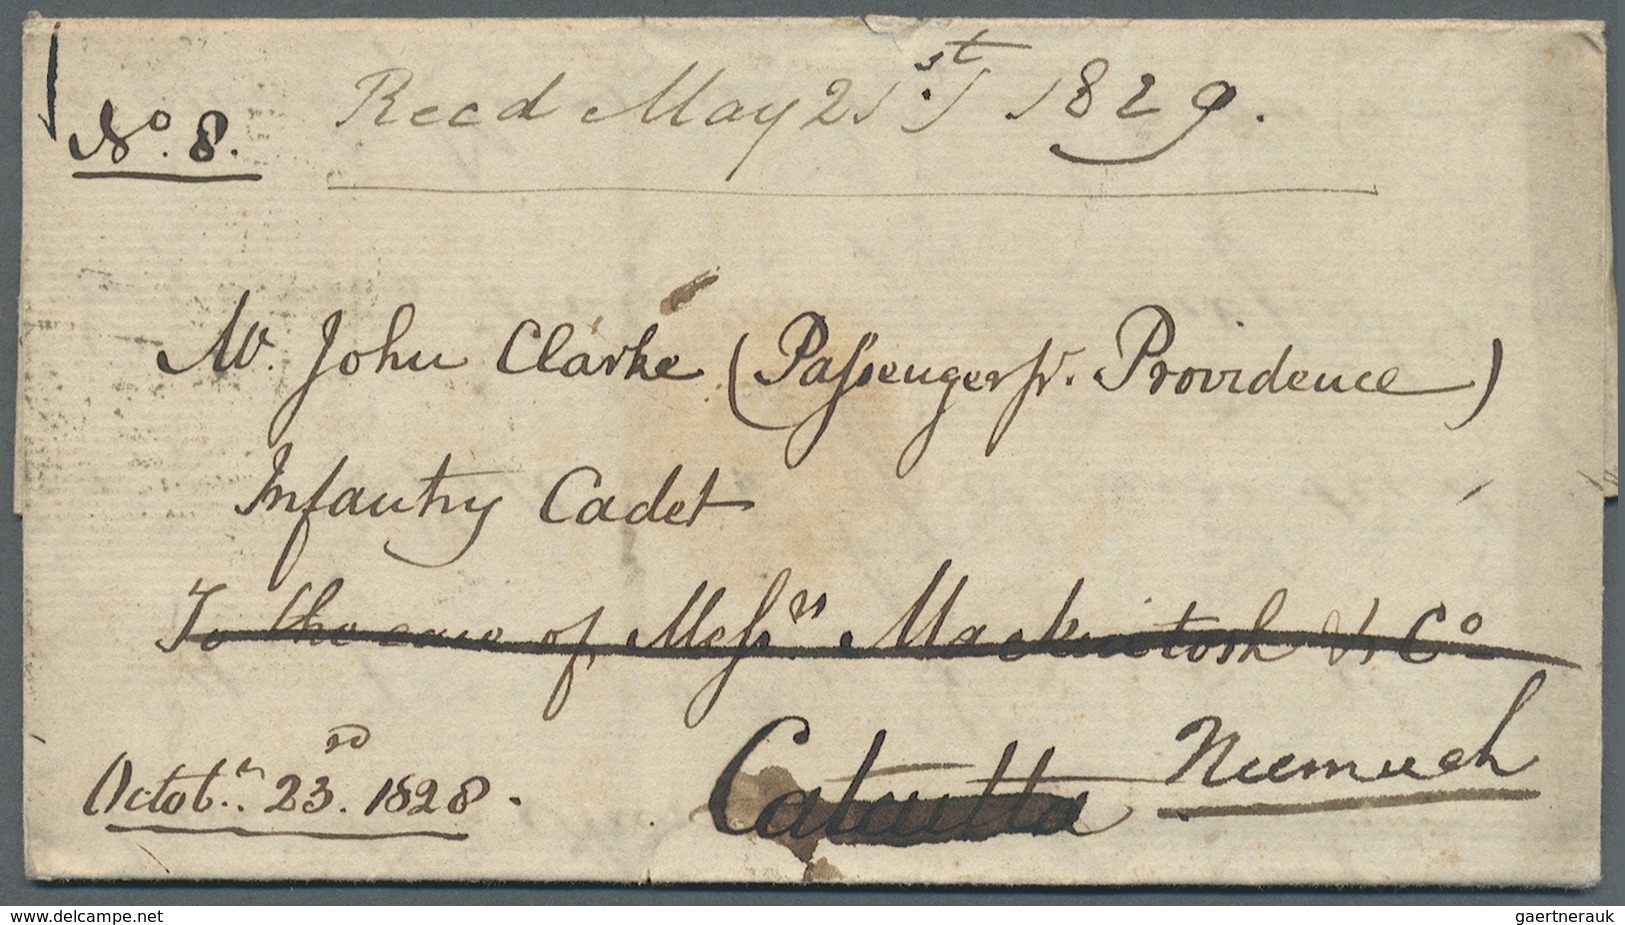 No. 8.
Recd May 21st 1829.
Mr. John Clarke (Passenger pr. Providence)
Infantry Cadet
To the care of Messrs Mackintosh & Co
Octobr. 23rd. 1828.
Calcutta Neemuch
www.delcampe.net
gaertnerauk